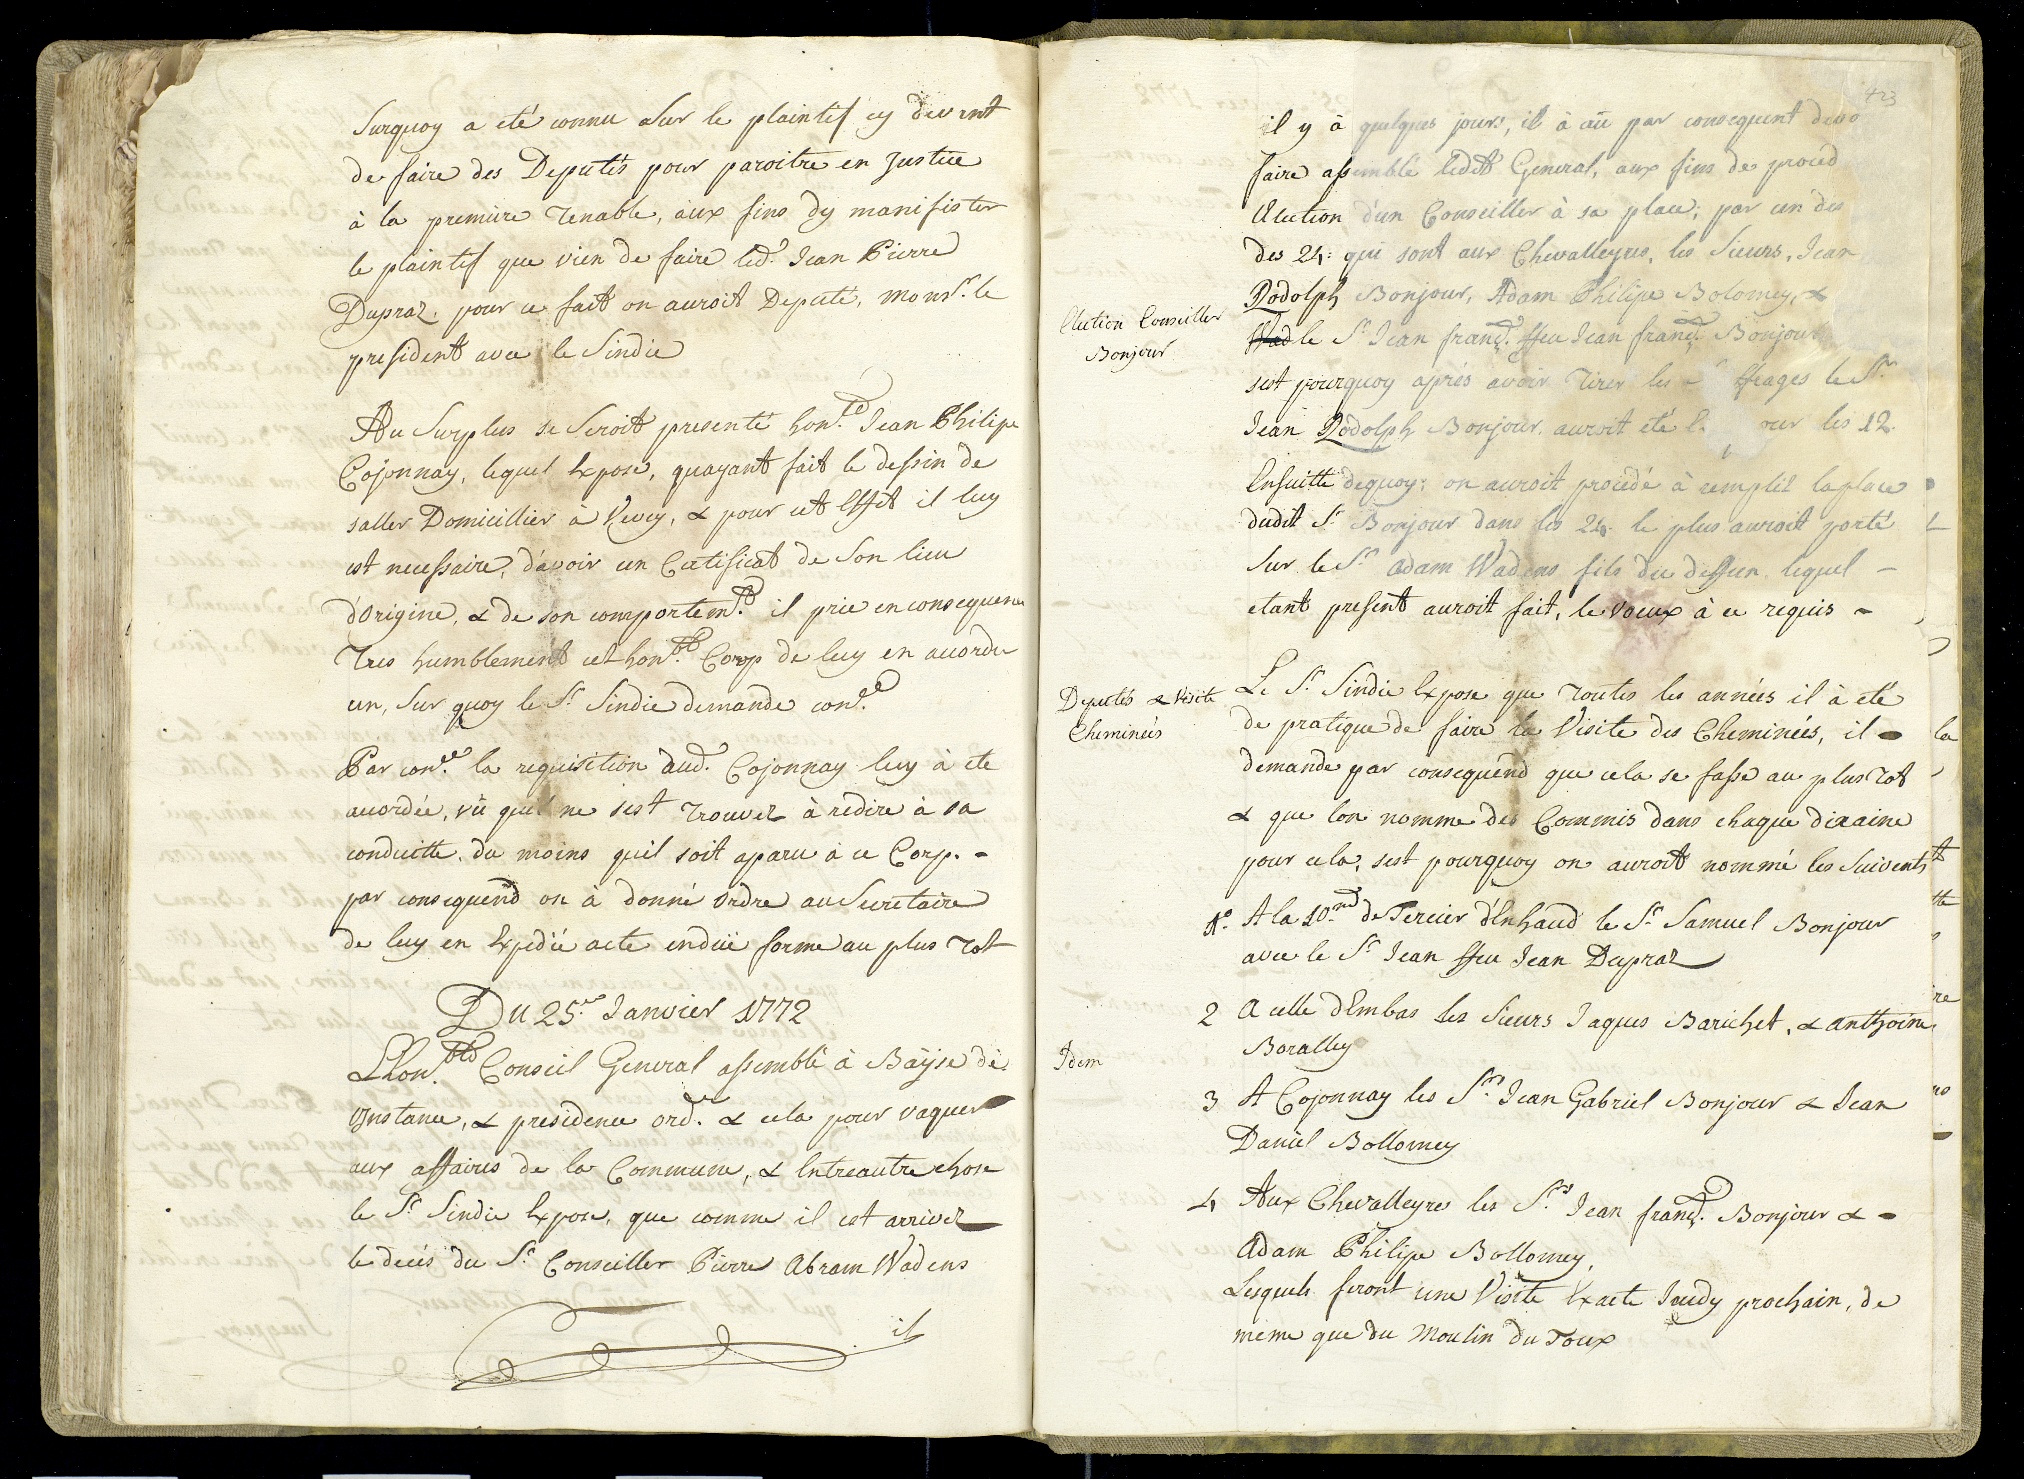 Surquoy a eté connu Sur le plaintif cy devent
de faire des Deputés pour paroitre en Justice
à la premiere Tenable, aux fins dy manifister
le plaintif que vien de faire led. Jean Pierre
Dupraz. pour ce fait on auroit Deputé, Monsr. le
president avec le Sindic
Au Surplus se Seroit presenté hon.te Jean Philipe
Cojonnay, lequel Expose, quayant fait le dessin de
saller Domicillier à Vevey, & pour cet Effet il luy
est necessaire, d'avoir un Certificat de Son lieu
d'origine, & de son comportem.t il prie en consequence
Tres humblement cet hon.ble Corp de luy en acorder
un, Sur quoy le Sr. Sindic demande con.ce
Par con.ce la requisition dud. Cojonnay luy à ete
acordée, vû quil ne sest trouvez à redire à sa
conduitte. du moins quil soit aparu à ce Corp. -
par consequend on à donné ordre au Secretaire
de luy en Expedié acte en düe forme au plus tot
Du 25.e Janvier 1772
Lhon.ble Conseil General assemblé à Bäÿse de
Instance, & presidence ord.e & cela pour vaquer
aux affaires de la Commune, & Entreautre chose
le Sr. Sindic Expose, que comme il est arrivez
le decés du Sr. Conseiller Pierre Abram Wadens
il
423
il y à quelques jours, il à aü par consequent devo
faire assemblé ledit General, aux fins de proced
Election d'un Conseiller à sa place; par un des
des 24: qui sont aux Chevalleyres, les Sieurs, Jean
Election Conseiller
Bonjour
Rodolph Bonjour, Adam Philipe Bolomey, &
le Sr. Jean franç. ffeu Jean franç. Bonjour
sest pourquoy aprés avoir Tirer les ffrages le Sr.
Jean Rodolph Bonjour, auroit eté our les 12.
Ensuitte dequoy; on auroit procédé à remplir la place
dudit Sr. Bonjour dans les 24. le plus auroit porté
Sur le Sr. Adam Wadens fils du deffun lequel -
etant present auroit fait, le voeux à ce requis -
Deputés & Visite
Cheminées
Le Sr. Sindic Expose que Toutes les années il à eté
de pratique de faire la Visite des Cheminées, il -
demande par consequend que cela se fasse au plus Tot
& que lon nomme des Commis dans chaque dixaine
pour cela; sest pourquoy on auroit nommé les Suivents
1°. A la 10.ne de Tercier d'Enhaud le Sr. Samuel Bonjour
avec le Sr. Jean ffeu Jean Dupraz
2 A celle dEmbas les Sieurs Jaques Barichet, & Anthoine
Boralley
Idem
3 A Cojonnay les Srs. Jean Gabriel Bonjour & Jean
Daniel Bollomey
4 Aux Chevalleyres les Srs. Jean franç. Bonjour & -
Adam Philipe Bollomey,
Lesquels feront une Visite Exacte Jeudy prochain, de
meme que du Moulin du Toux